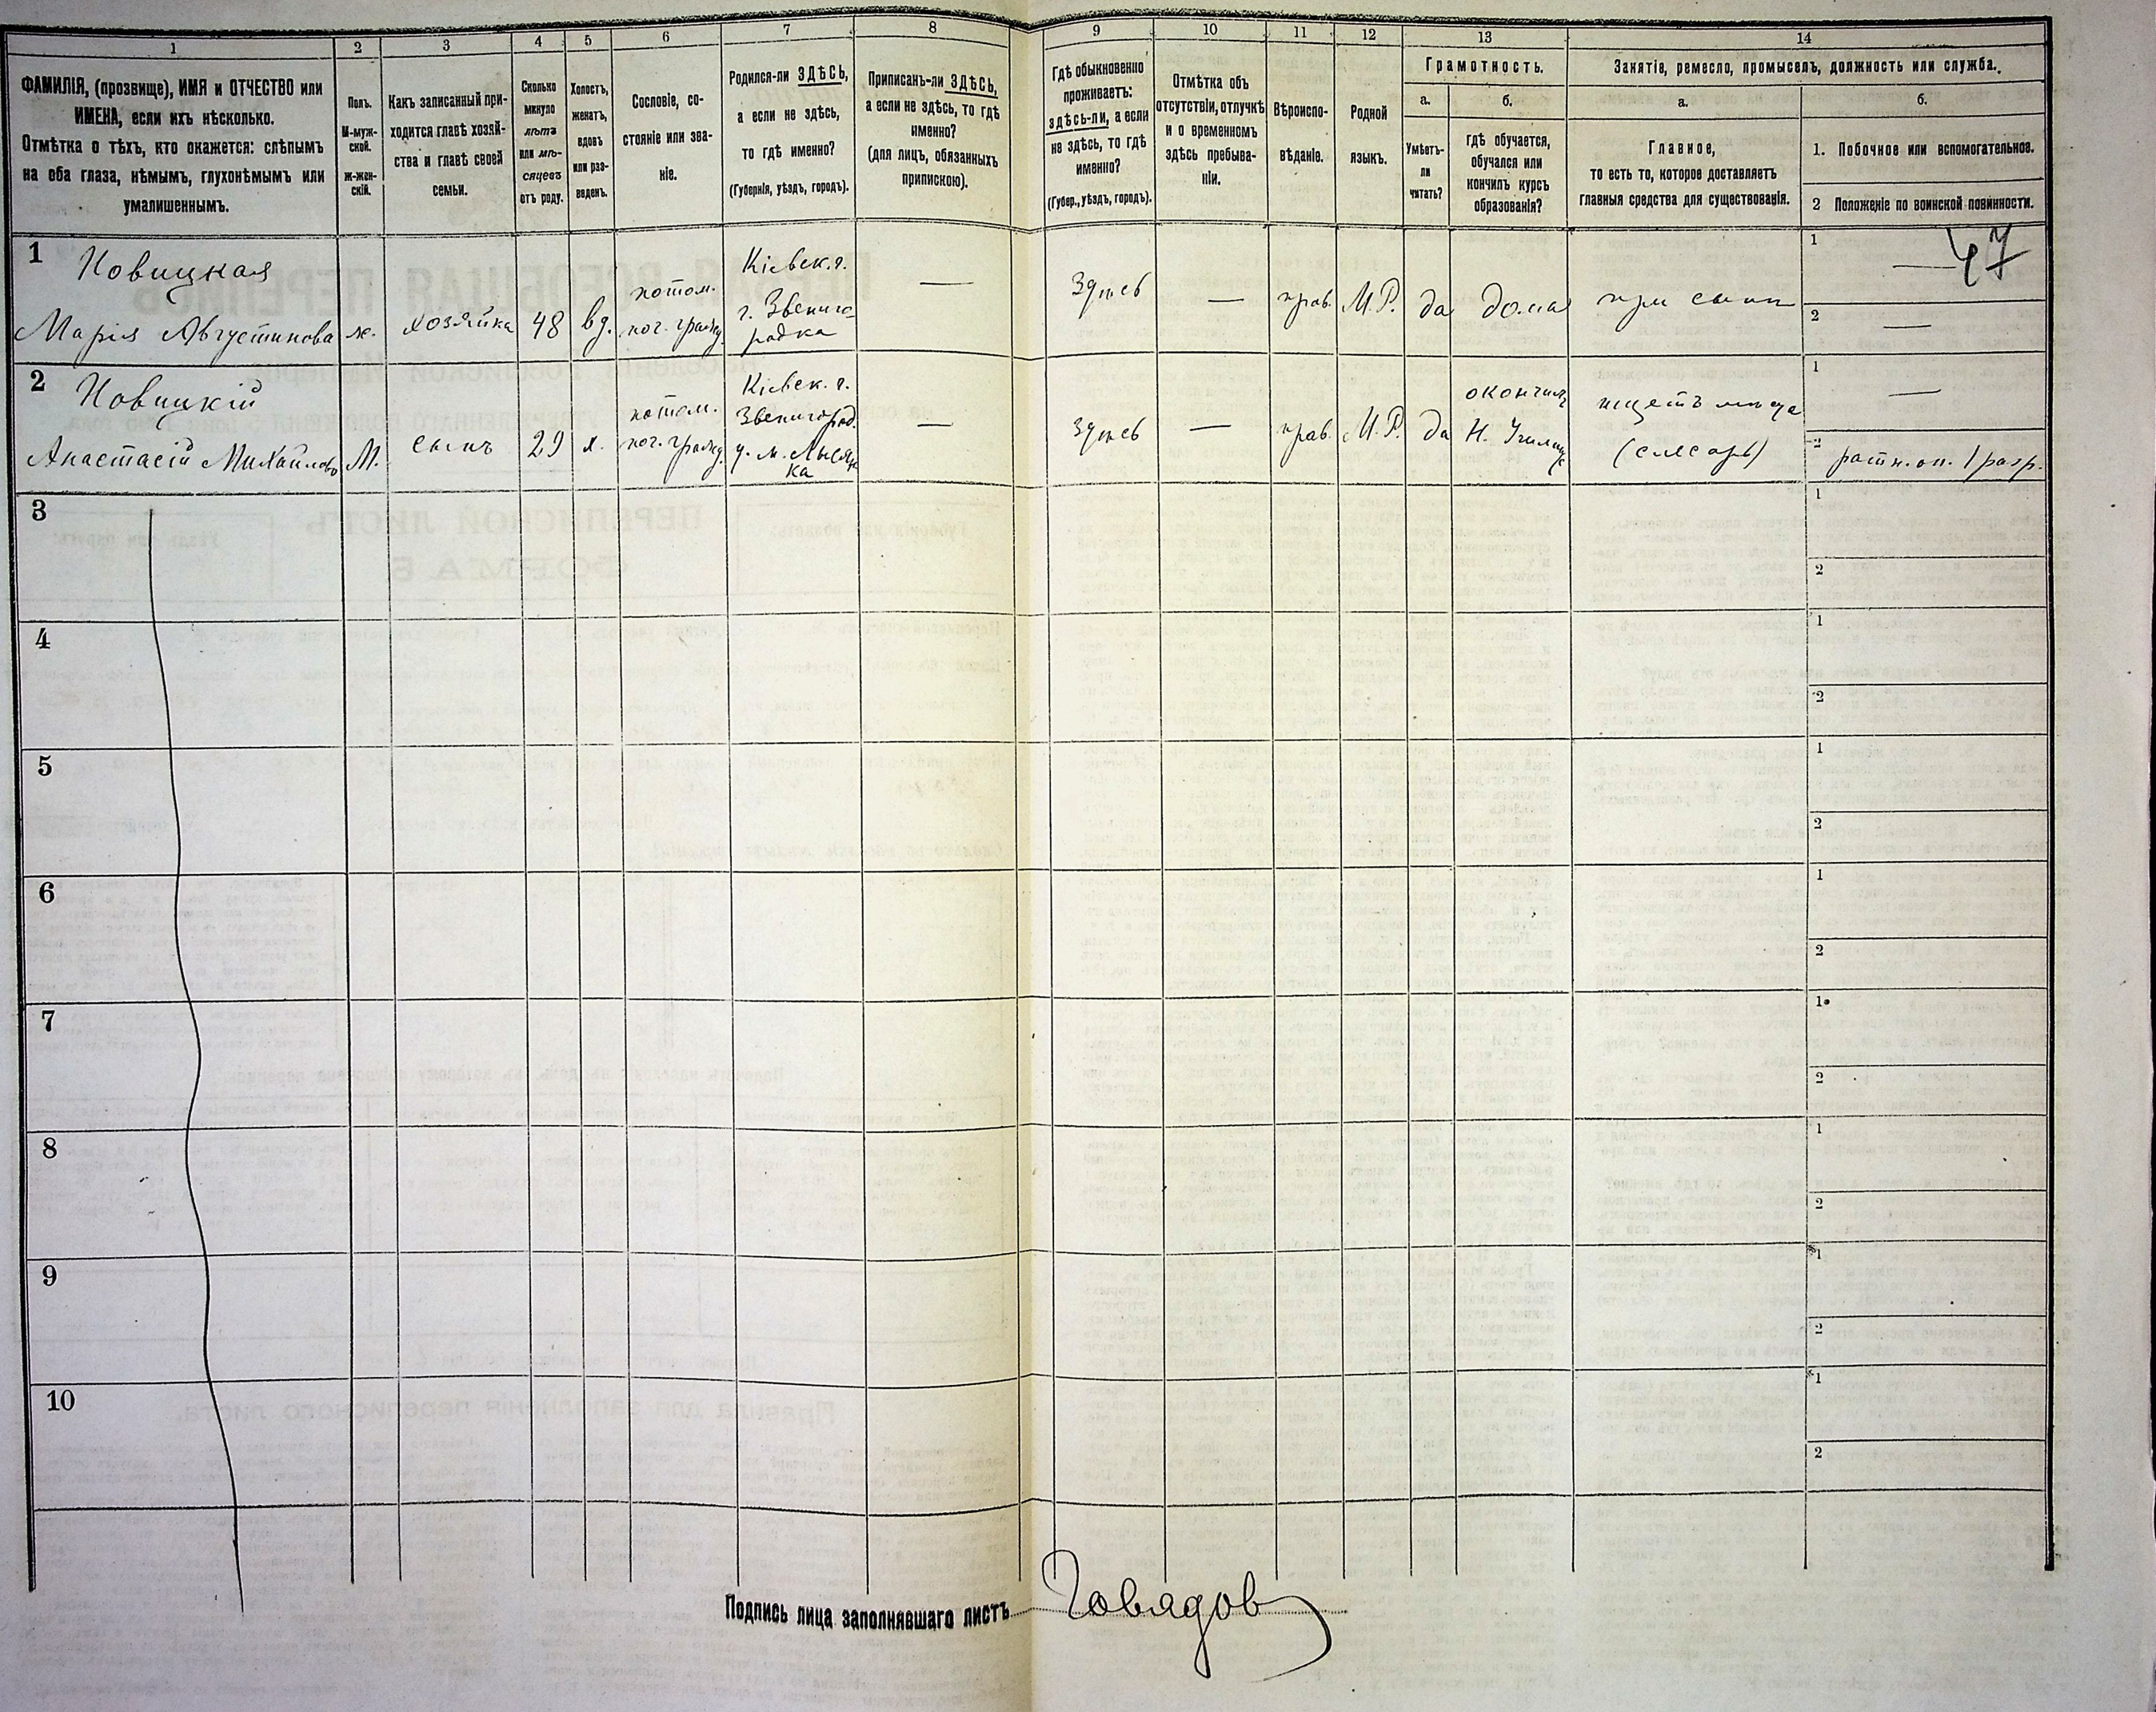 1
2
3
4
5
6
7
8
9
10
11
12
13
14
ФАМИЛІЯ, (прозвище), ИМЯ и ОТЧЕСТВО или
ИМЕНА, если ихъ нѣсколько.
Отмѣтка о тѣхъ, кто окажется: слѣпымъ
на оба глаза, нѣмымъ, глухонѣмымъ или
умалишеннымъ.
Полъ.
М-муж-
ской.
ж-жен-
скій.
Какъ записанный при-
ходится главѣ хозяй-
ства и главѣ своей
семьи.
Сколько
минуло
лѣтъ
или мѣ-
сяцевъ
отъ роду.
Холостъ,
женатъ,
вдовъ
или раз-
веденъ.
Сословіе, со-
стояніе или зва-
ніе.
Родился-ли ЗДѢСЬ,
а если не здѣсь,
то гдѣ именно?
(Губернія, уѣздъ, городъ).
Приписанъ-ли ЗДѢСЬ,
а если не здѣсь, то гдѣ
именно?
(для лицъ, обязанныхъ
припискою).
Гдѣ обыкновенно
проживаетъ:
здѣсь-ли, а если
не здѣсь, то гдѣ
именно?
(Губер., уѣздъ, городъ).
Отмѣтка объ
отсутствіи, отлучкѣ
и о временномъ
здѣсь пребыва-
ніи.
Вѣроиспо-
вѣданіе.
Родной
языкъ.
Грамотность.
а.
Умѣетъ-
ли
читать?
б.
гдѣ обучается,
обучался или
кончилъ курсъ
образованія?
Занятіе, ремесло, промыселъ, должность или служба.
а.
Главное,
то есть то, которое доставляетъ
главныя средства для существованія.
б.
1. Побочное или вспомогательное.
2 Положеніе по воинской повинности.
1
Новицкая
Марія Августинова
ж.
хозяйка
48
вд.
потом.
поч. гражд.
Кіевск. г.
г. Звениго-
родка
—
Здѣсь
—
прав.
М.Р.
да
дома
при сынѣ
1
—
47
2
—
2
Новицкій
Анастасій Михайлово
М.
сынъ
29
х.
потом.
поч. гражд.
Кіевск. г.
Звенигород.
у. м. Лысян
ка
—
Здѣсь
—
прав.
М.Р.
да
окончилъ
Н. Училище
ищетъ мѣста
(слесарь)
1
—
2
ратн. оп. 1 разр.
3
1
2
4
1
2
5
1
2
6
1
2
7
1
2
8
1
2
9
1
2
10
1
2
Подпись лица заполнявшаго листъ